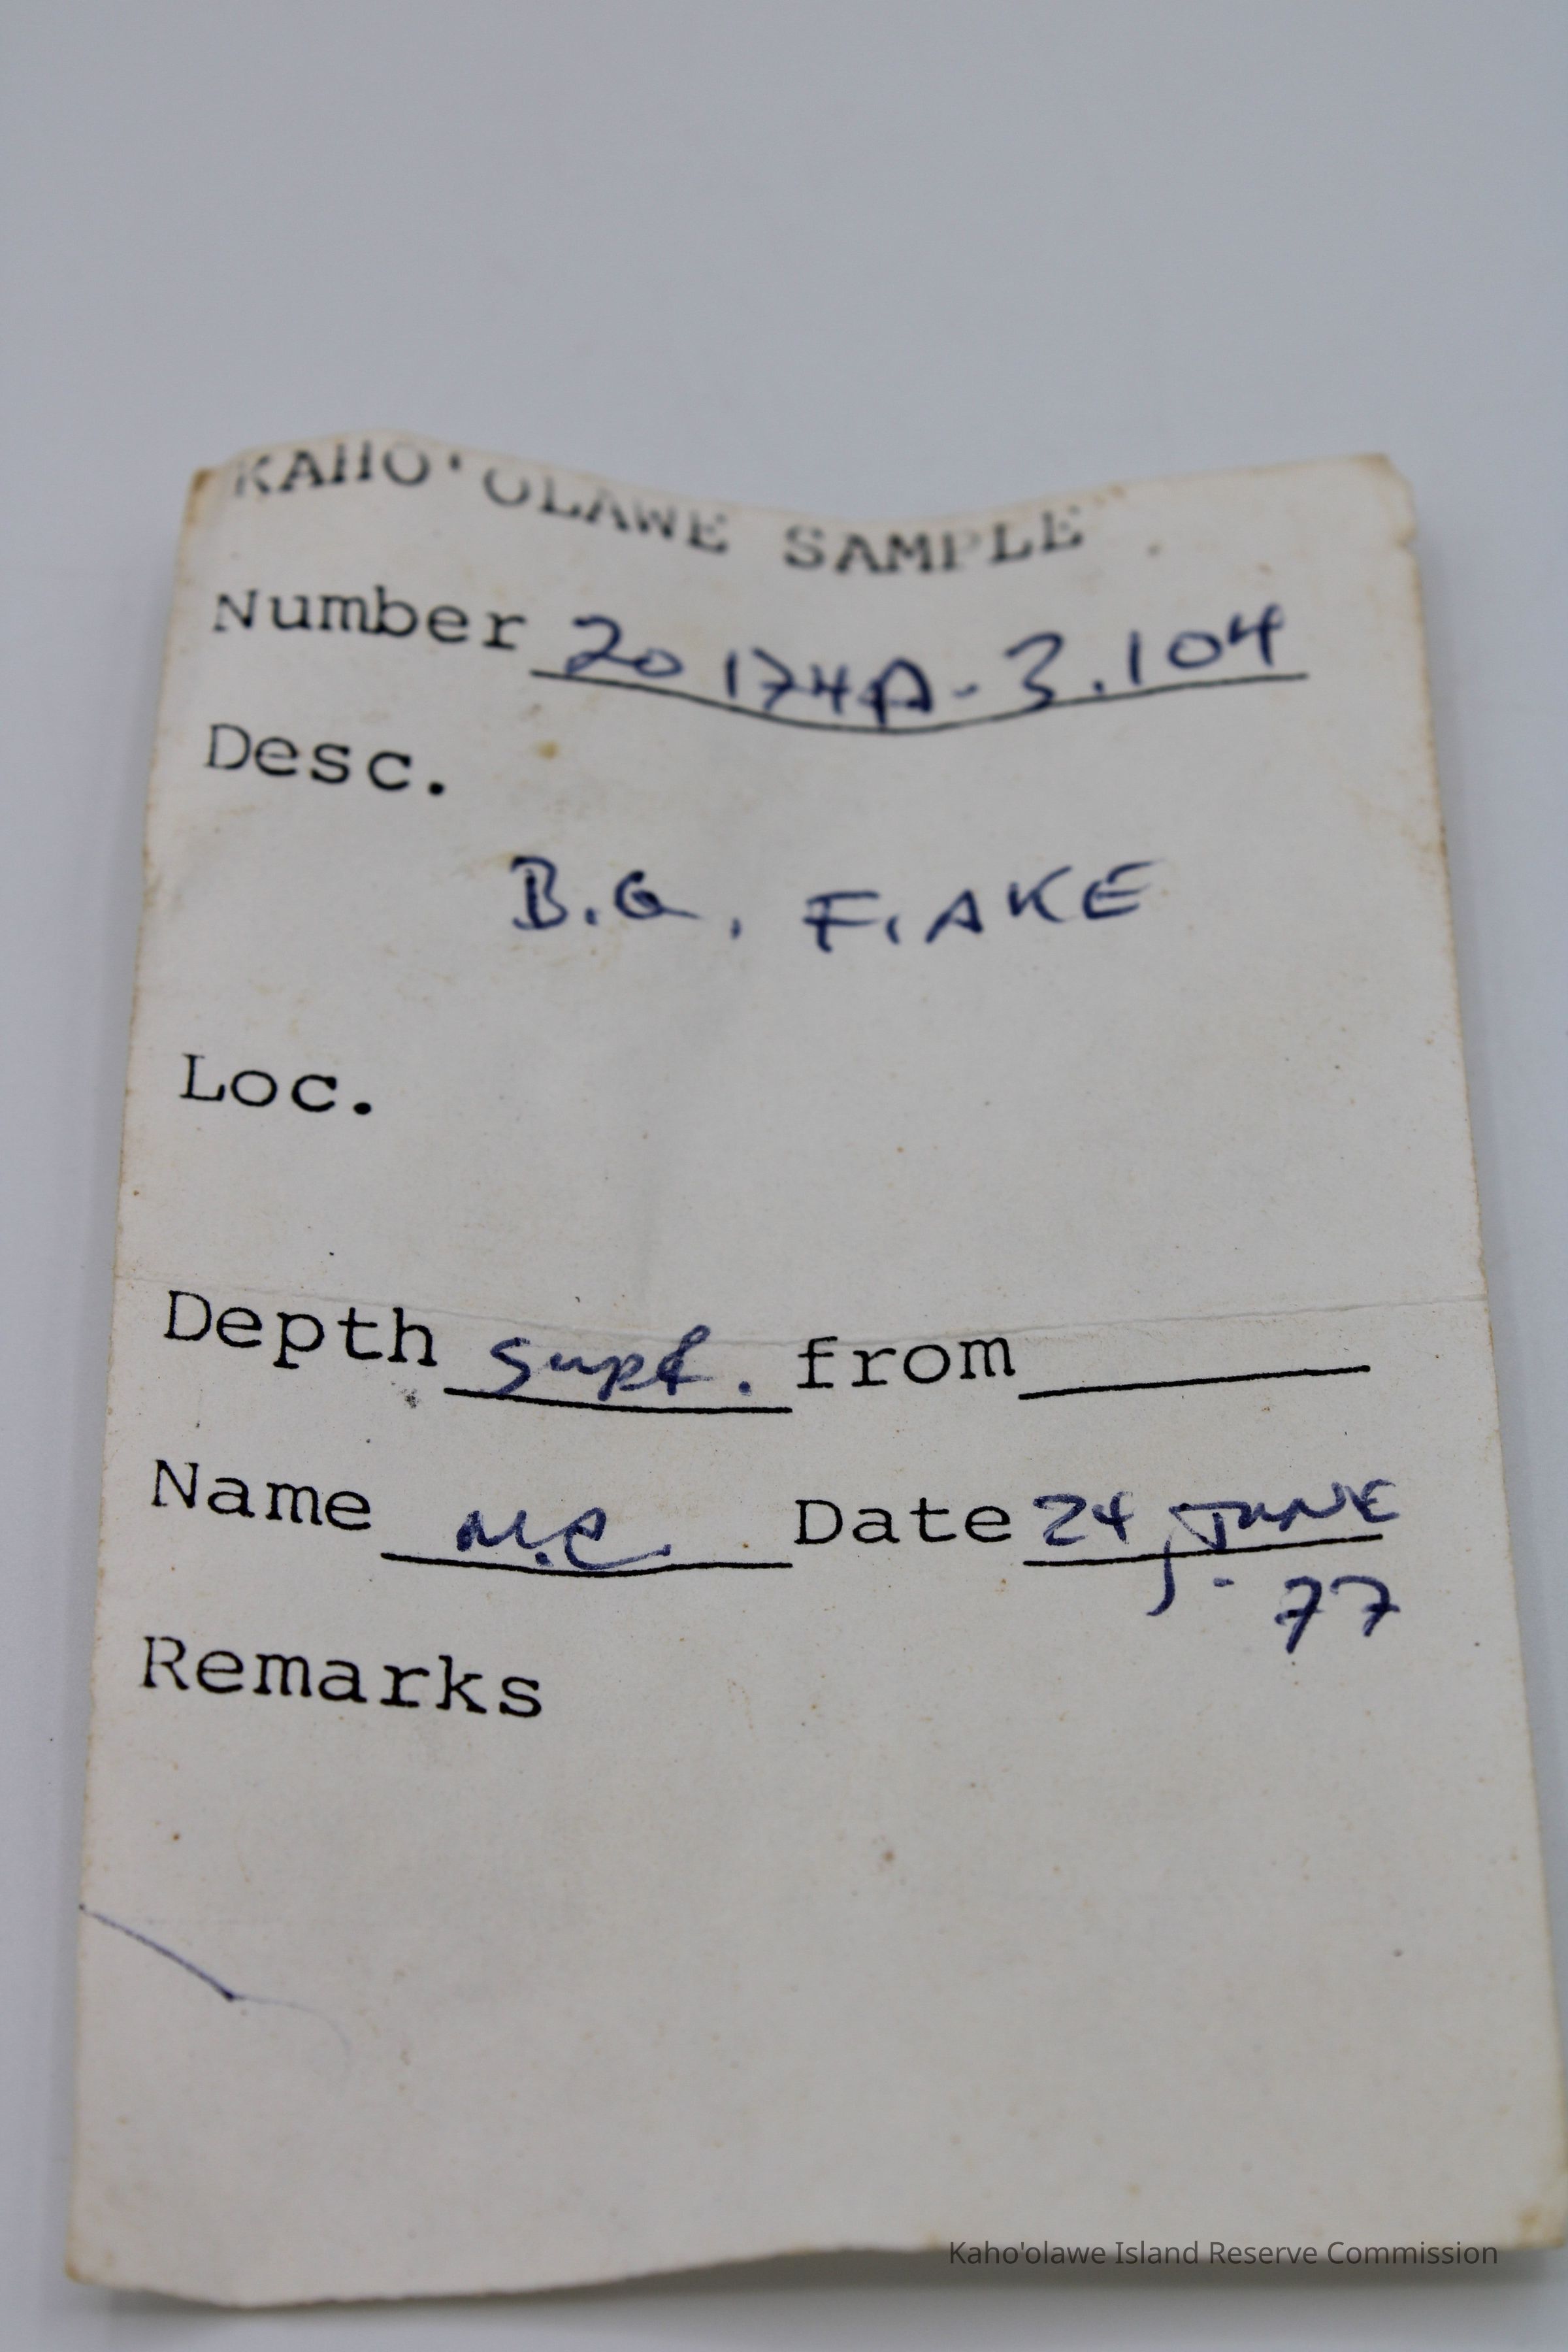 KAHO'OLAWE SAMPLE
Number 20174A-3.104
Desc.
B.G. FLAKE
Loc.
Depth surf. from
Name M.C. Date 24 JUNE
77
Remarks
Kaho'olawe Island Reserve Commission